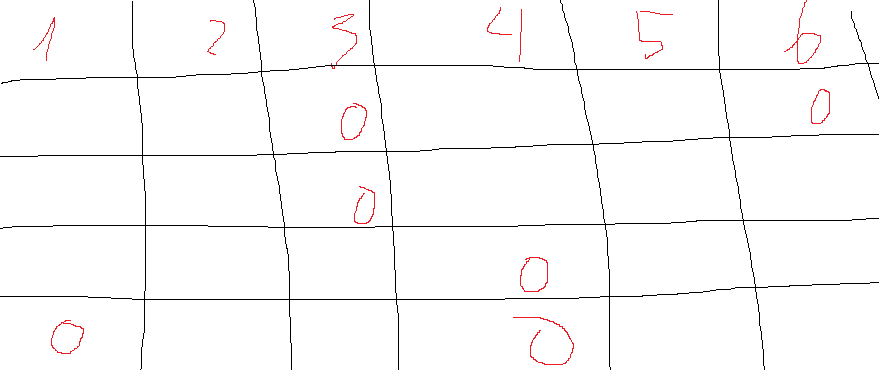 1 2 3 4 5 6
0 0
0
0
0 0